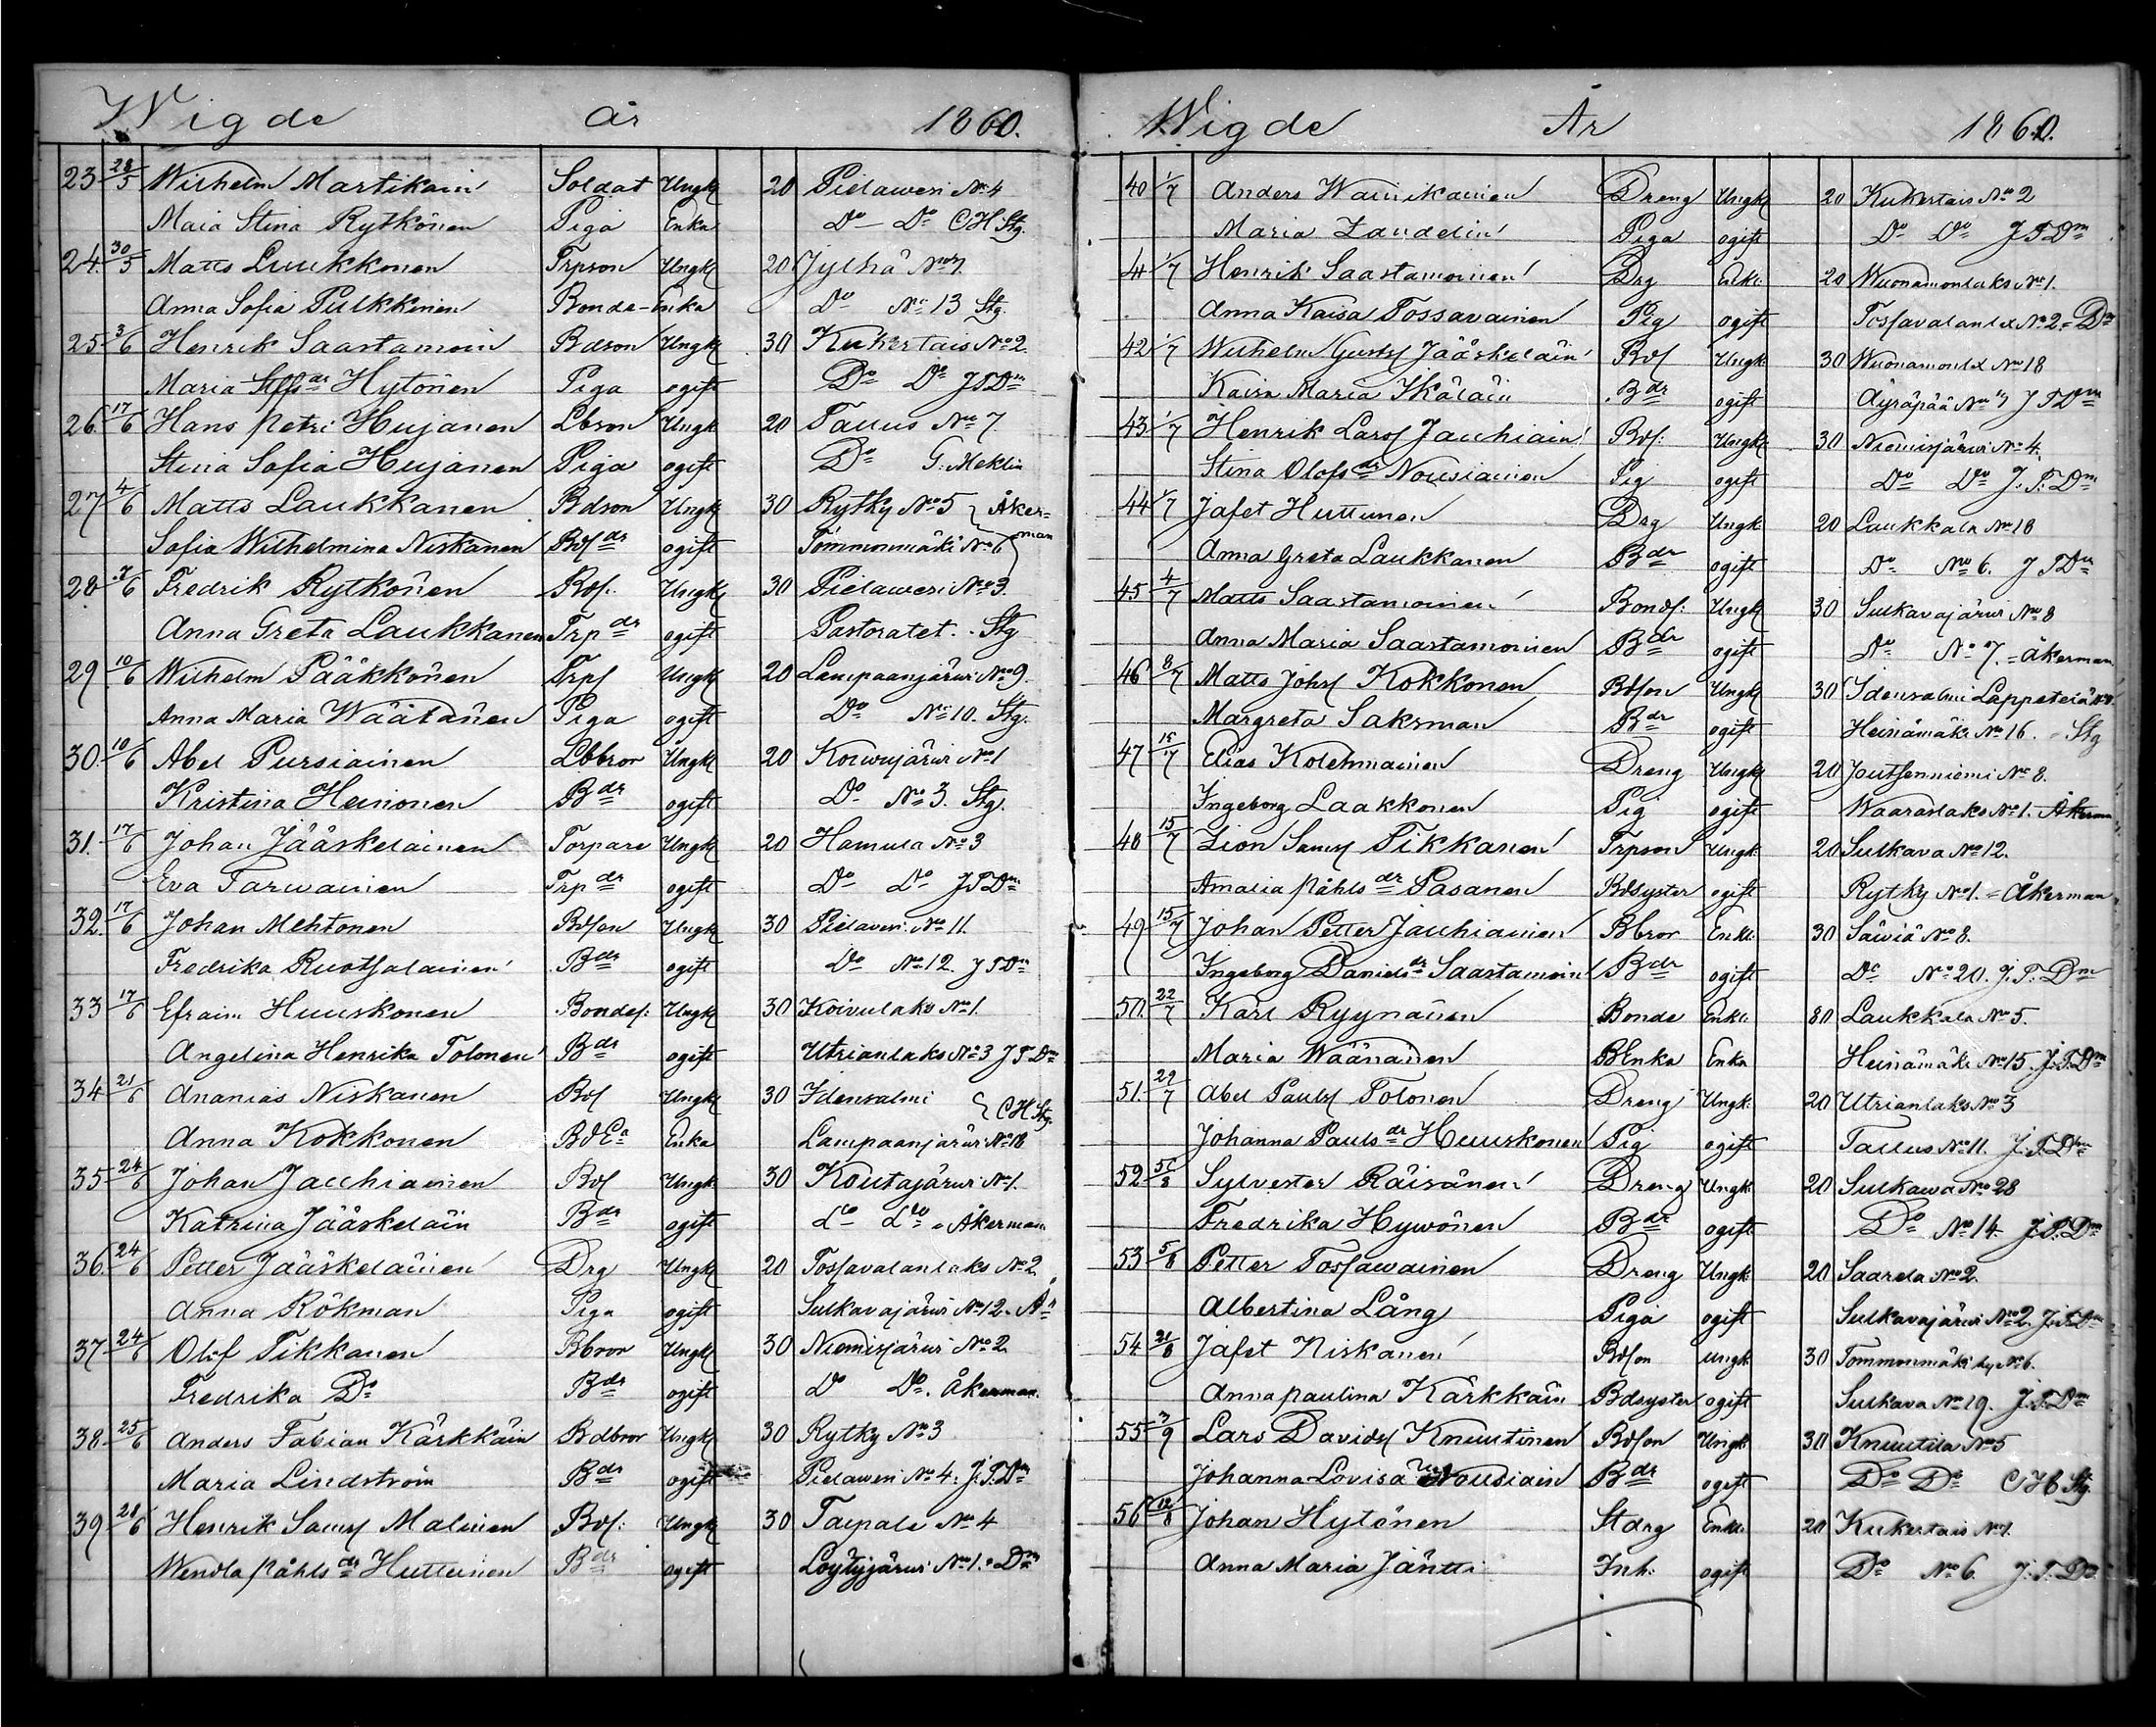 Wigde år 1860.
23 28/5 Wilhelm Martikain Soldat Ungk 20 Pielawesi No 4
Maia Stina Rytkönen Piga Enka Do Do CH Stg.
24. 30/5 Matts Luukkonen Trpson Ungk 20 Jylhä No 7.
Anna Sofia Pulkkinen Bonde-Enka Do No 13 Stg.
25 3/6 Henrik Saastamoin Bdson Ungk 30 Kukertais No 2.
Maria Hytönen Piga ogift Do Do JTDm
26. 17/6 Hans Petri Hujanen Lbson Ungk 20 Tallus No 7.
Stina Sofia Hujanen Piga ogift Do G. Meklin
27 4/6 Matts Laukkanen Bdson Ungk 30 Rytky No 5 Åker-
Sofia Wilhelmina Niskanen Bdsdr ogift Tommonmäki No 6 man
28 7/6 Fredrik Rytkönen Bds. Ungk 30 Pielawesi No 3.
Anna Greta Laukkanen Trpdr ogift Pastoratet. Stg
29 10/6 Wilhelm Pääkkönen Trps Ungk 20 Lampaanjärwi No 9.
Anna Maria Wäätänen Piga ogift Do No 10. Stg.
30. 10/6 Abel Pursiainen Lbbror Ungk 20 Koiwujärwi No 1
Kristina Heinonen Bdr ogift Do No 3. Stg.
31. 17/6 Johan Jääskelainen Torpare Ungk 20 Hamula No 3
Eva Tarwainen Trpdr ogift Do Do JTDm
32. 17/6 Johan Mehtonen Bdson Ungk 30 Pielavesi No 11.
Fredrika Ruotsalainen Bdr ogift Do No 12. JTDm
33 17/6 Efraim Huuskonen Bondes: Ungk 30 Koivulaks No 1.
Angelina Henrika Tolonen Bdr ogift Utrianlaks No 3 JTDm
34 21/6 Ananias Niskanen Bds Ungk 30 Idensalmi CH Stg.
Anna Kokkonen BdEa Enka Lampaanjärwi No 18
35 24/6 Johan Jauhiainen Bds Ungk 30 Koutajärwi No 1.
Katrina Jääskeläin Bdr ogift Do Do = Åkerman
36. 24/6 Petter Jääskeläinen Drg Ungk 20 Tossavalanlaks No 2
Anna Rökman Piga ogift Sulkavajärwi No 12. Ån
37 24/6 Olof Tikkanen Bbror Ungk 30 Niemisjärwi No 2
Fredrika Do Bdr ogift Do Do. Åkerman.
38 25/6 Anders Fabian Kärkkäin Bdbror Ungk 30 Rytky No 3
Maria Lindström Bdr ogift Pielawesi No 4. J.T.Dm
39 28/6 Henrik Sams Malinen Bds: Ungk 30 Taipale No 4
Wendla Påhlsdr Huttunen Bdr ogift Löytyjärwi No 1. Dm
Wigde År 1860.
40 1/7 Anders Wainikainen Dreng Ungk 20 Kukertais No 2
Maria Zaudelin Piga ogift Do Do JTDm
41 1/7 Henrik Saastamoinen Drg Enkl: 20 Wuonamonlaks No 1.
Anna Kaisa Tossavainen Pig ogift Tossavalanlax No 2 = Dm
42 1/7 Wilhelm Gusts Jääskeläin Bds Ungk 30 Wuonamonlx No 18
Kaisa Maria Ikäläin Bdr ogift Äyräpää No 7 JTDm
43 1/7 Henrik Lars Jauhiain Bds: Ungk: 30 Niemisjärwi No 4.
Stina Olofsdr Nousiainen Pig ogift Do Do J.T.Dm
44 1/7 Jafet Huttunen Drg Ungk 20 Laukkala No 18
Anna Greta Laukkanen Bdr ogift Do No 6. JTDm
45 4/7 Matts Saastamoinen Bonds: Ungk 30 Sulkavajärwi No 8
Anna Maria Saastamoinen Bdr ogift Do No 7. = Åkerman
46 8/7 Matts Johs Kokkonen Bdson Ungk 30 Idensalmi Lappetelä
Margreta Saksman Bdr ogift Heinämäki No 16. = Stg
47 15/7 Elias Kolehmainen Dreng Ungk 20 Joutsenniemi No 8.
Ingeborg Laakkonen Pig ogift Waaraslaks No 1. Åkerman
48 15/7 Zion Sams Tikkanen Trpson Ungk 20 Sulkava No 12.
Amalia Påhlsdr Pasanen Bdsyster ogift Rytky No 1. = Åkerman
49 15/7 Johan Petter Jauhiainen Bbror Enkl: 30 Säwiä No 8.
Ingeborg Danielsdr Saastamoin Bdr ogift Do No 20. J.T.Dm
50. 22/7 Karl Ryynänen Bonde Enkl: 30 Laukkala No 5.
Maria Wäänänen BEnka Enka Heinämäki No 15. J.T.Dm
51. 29/7 Abel Pauls Tolonen Dreng Ungk: 20 Utrianlaks No 3
Johanna Paulsdr Huuskonen Pig ogift Tallus No 11. J.T.Dm
52 5/8 Sylvester Räisänen Dreng Ungk 20 Sulkawa No 28
Fredrika Hywönen Bdr ogift Do No 14. J.T.Dm
53 5/8 Petter Tossawainen Dreng Ungk 20 Saarela No 2.
Albertina Lång Piga ogift Sulkavajärwi No 2. J.T.Dm
54 21/8 Jafet Niskanen Bdson ungk 30 Tommonmäki No 6.
Anna Paulina Kärkkäin Bdsyster ogift Sulkava No 19. J.T.Dm
55 7/9 Lars Davids Knuutinen Bdson Ungk 30 Knuutila No 5
Johanna Lovisa Nousiain Bdr ogift Do Do CH Stg.
56 12/8 Johan Hytönen Stdrg Enkl: 20 Kukertais No 1.
Anna Maria Jäntti Inh. ogift Do No 6. J.T.Dm